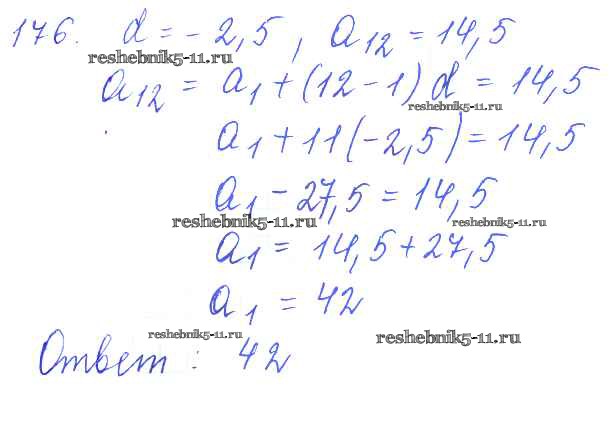 176. d = -2,5, a₁₂ = 14,5
reshebnik5-11.ru
a₁₂ = a₁ + (12 - 1) d = 14,5
reshebnik5-11.ru
a₁ + 11(-2,5) = 14,5
a₁ - 27,5 = 14,5
reshebnik5-11.ru reshebnik5-11.ru
a₁ = 14,5 + 27,5
a₁ = 42
reshebnik5-11.ru reshebnik5-11.ru
Ответ: 42